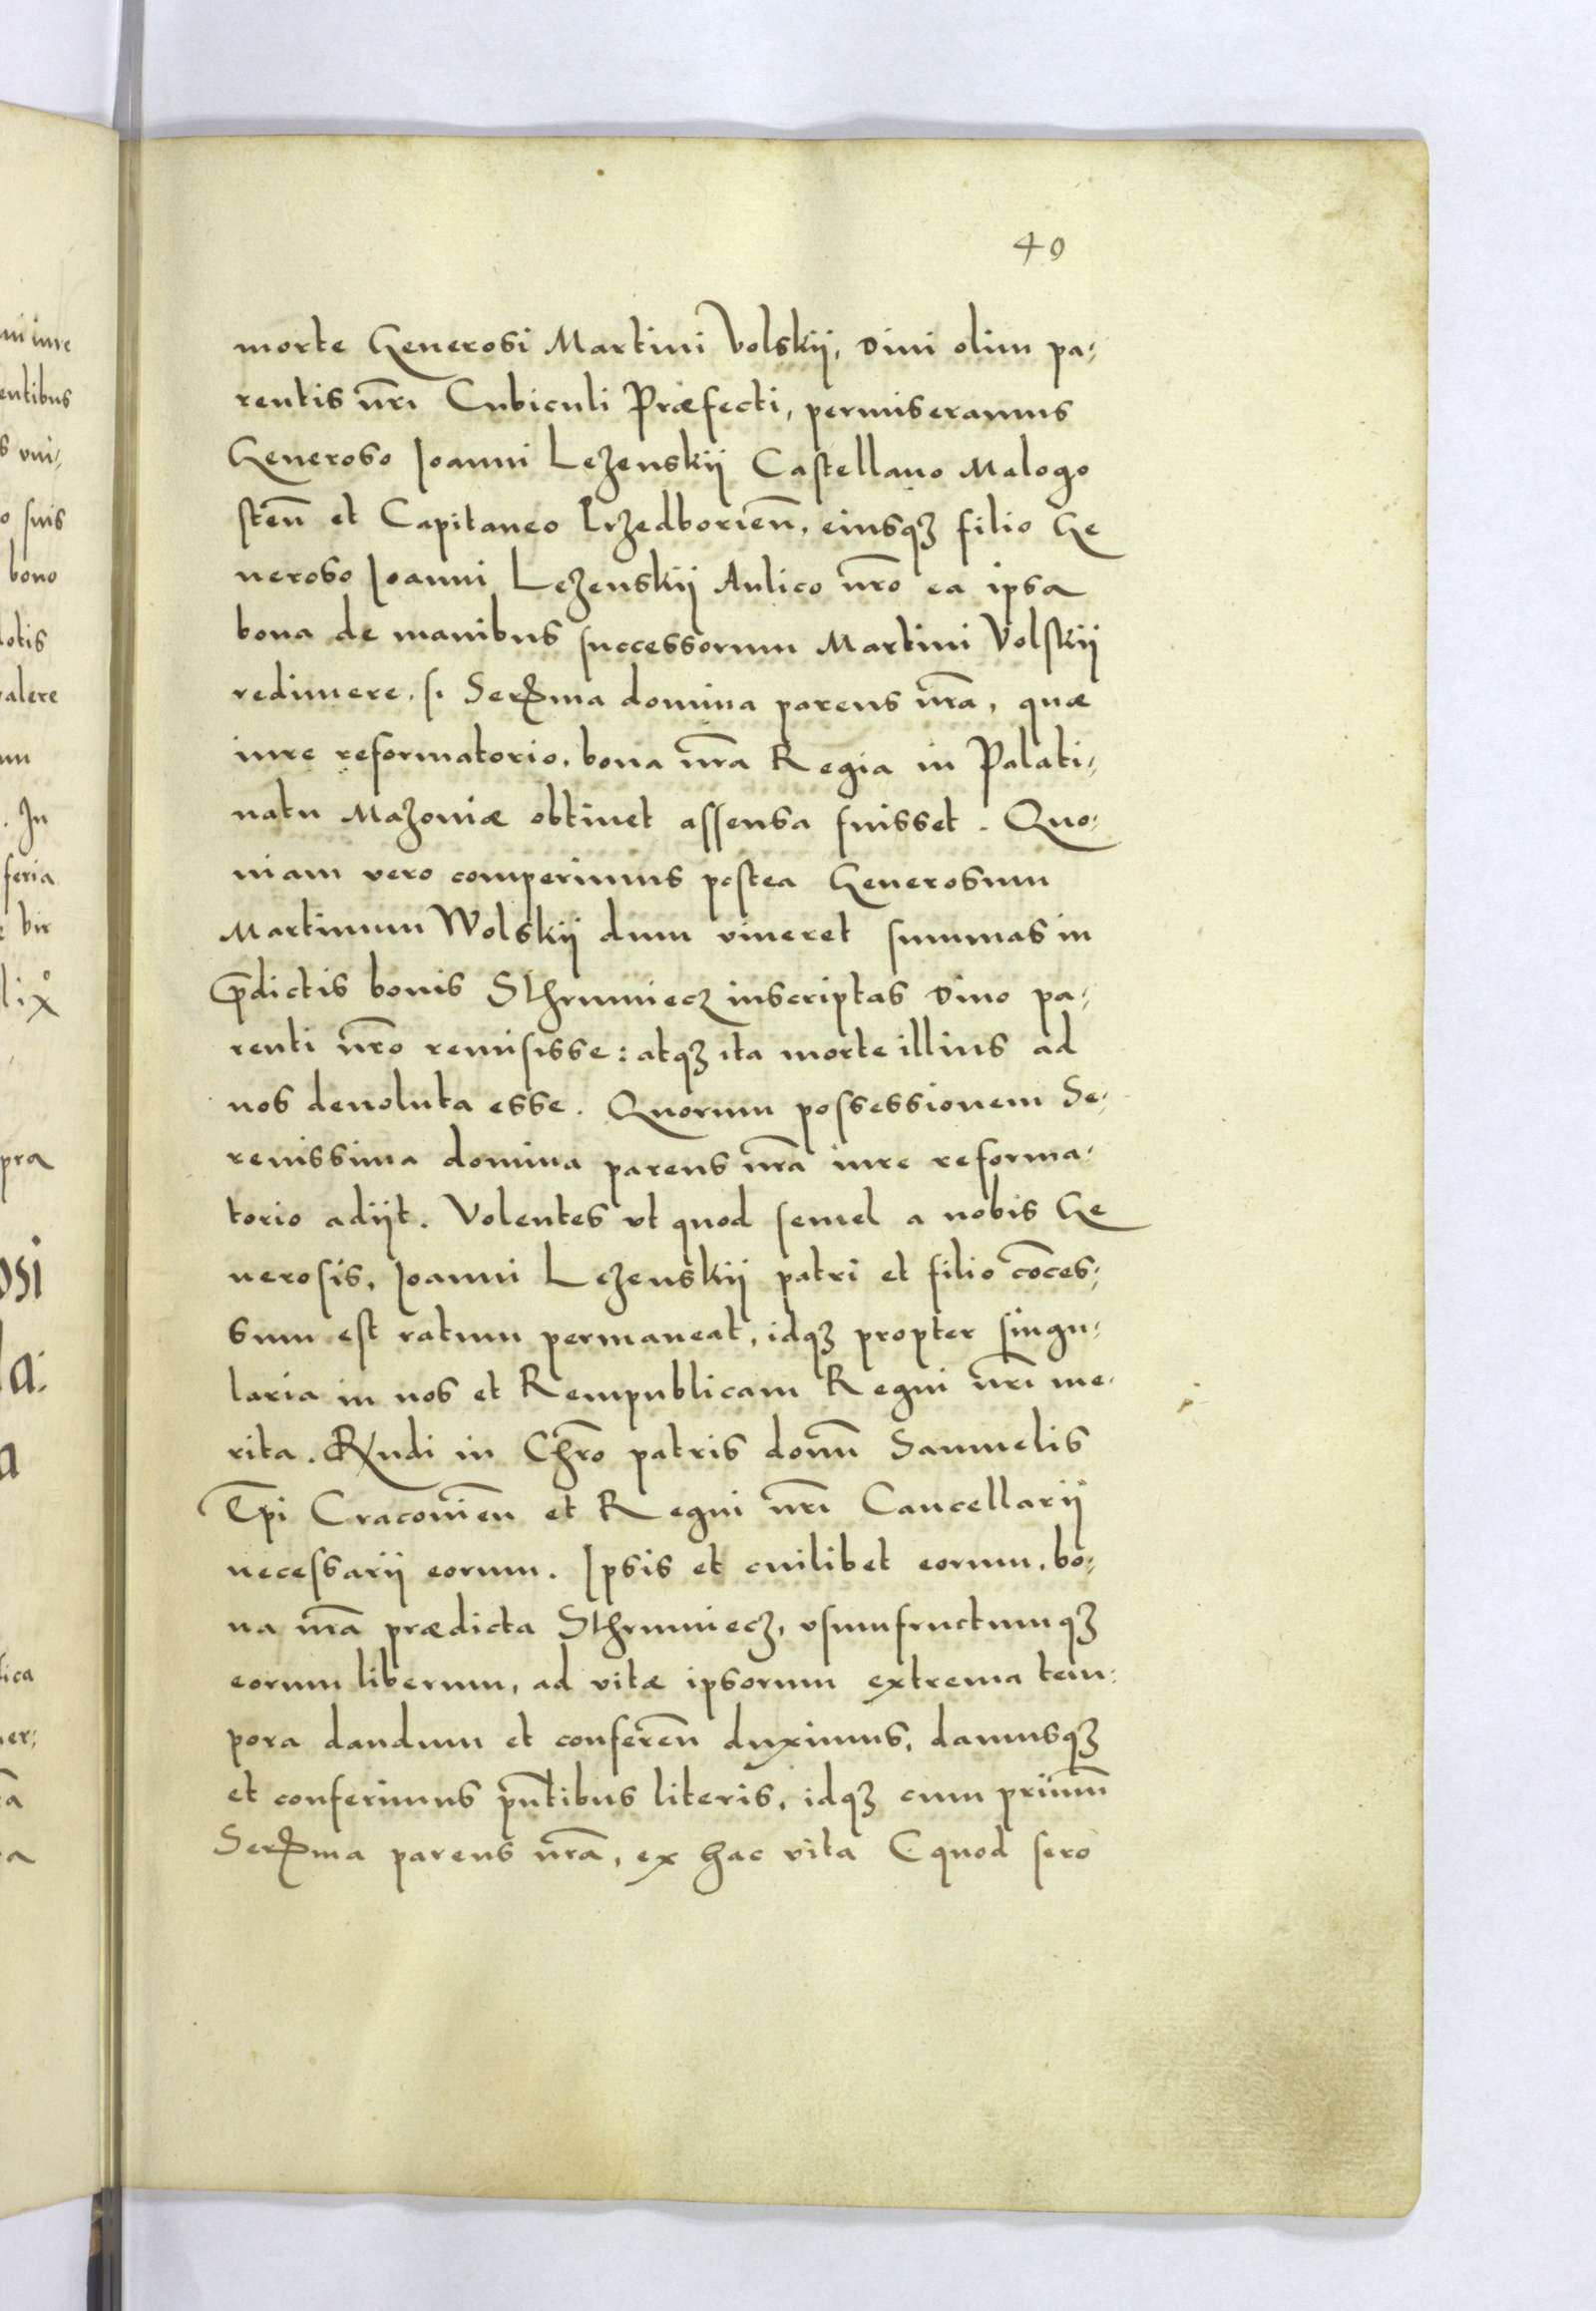 40
morte Generosi Martini Volskij, Divi olim pa-
rentis nr̄i Cubiculi Præfecti, permiseramus
Generoso Ioanni Lezenskij Castellano Malogo
steñ et Capitaneo Przedborieñ, eiusq3 filio Ge
neroso Ioanni Lezenskij Aulico nr̄o ea ipsa
bona de manibus successorum Martini Volskij
redimere. si Serma domina parens nr̄a, quæ
iure reformatorio, bona nr̄a Regia in Palati-
natu Mazoviæ obtinet assensa fuisset. Quo-
niam vero comperimus postea Generosum
Martinum Wolskij dum viveret summas in
p̄dictis bonis Sthrumiecz inscriptas Divo pa-
renti nr̄o remisisse: atq3 ita morte illius ad
nos devoluta esse. Quorum possessionem Se-
renissima domina parens nr̄a iure reforma-
torio adijt. Volentes ut quod semel a nobis Ge
nerosis, Ioanni Lezenskij patri et filio cōces-
sum est ratum permaneat, idq3 propter singu-
laria in nos et Rempublicam Regni nr̄i me-
rita. Rndi in Chr̄o patris domñ Samuelis
Ep̄i Cracovieñ et Regni nr̄i Cancellarij
necessarij eorum. Ipsis et cuilibet eorum, bo-
na nr̄a prædicta Sthrumiecz, usumfructumq3
eorum liberum, ad vitæ ipsorum extrema tem-
pora dandum et confereñ duximus, damusq3
et conferimus pñtibus literis, idq3 cum primū
Serma parens nr̄a, ex hac vita (quod sero